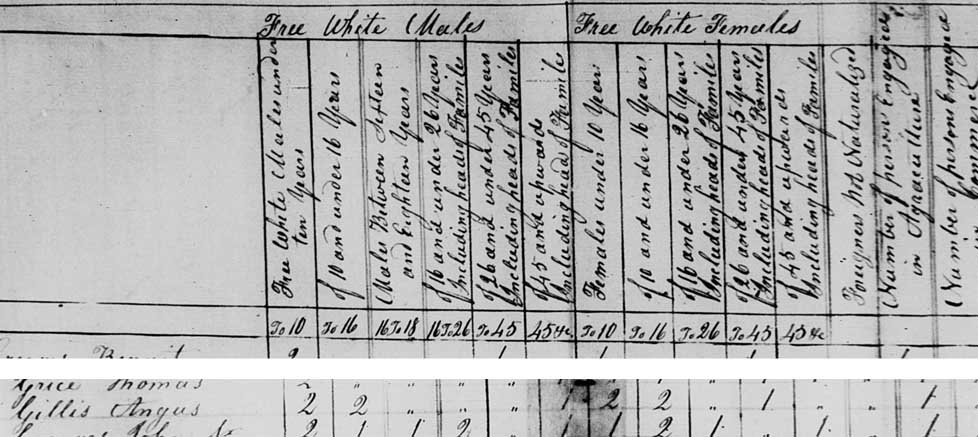 Free White Males Free White Females
Free White Males under ten Years
of 10 and under 16 Years
Males Between Sixteen and Eighteen Years
of 16 and under 26 Years Including heads of Families
of 26 and under 45 Years Including heads of Families
of 45 and upwards Including heads of Familie
Females under 10 Years
of 10 and under 16 Years
of 16 and under 26 Years Including heads of Families
of 26 and under 45 Years Including heads of Families
of 45 and upwards Including heads of Families
Foreigners Not Naturalized
Number of person Engaged in Agaculture
Number of persons Engage
To 10 To 16 16 To 18 16 To 26 To 45 45 &c To 10 To 16 To 26 To 45 45 &c
Grice Thomas 2 " " " " " " " "
Gillis Angus 2 2 " " " 1 2 2 " 1 " " 1
2 1 1 2 " 1 1 2 1 " 1 " 1